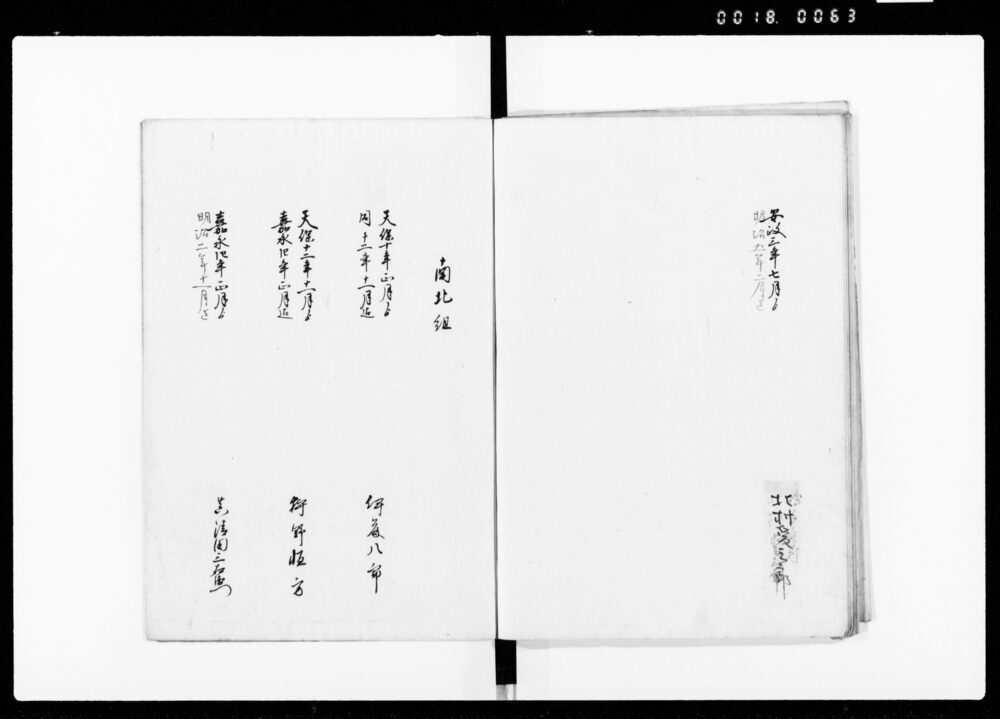 0018.0063
安政三年七月ゟ
明治五年二月迄
北村愛之郎
南北組
天保十年正月ゟ
同十二年十一月迄
伊藤八郎
天保十二年十一月ゟ
嘉永四年正月迄
狩野恒方
嘉永四年正月ゟ
明治二年十一月迄